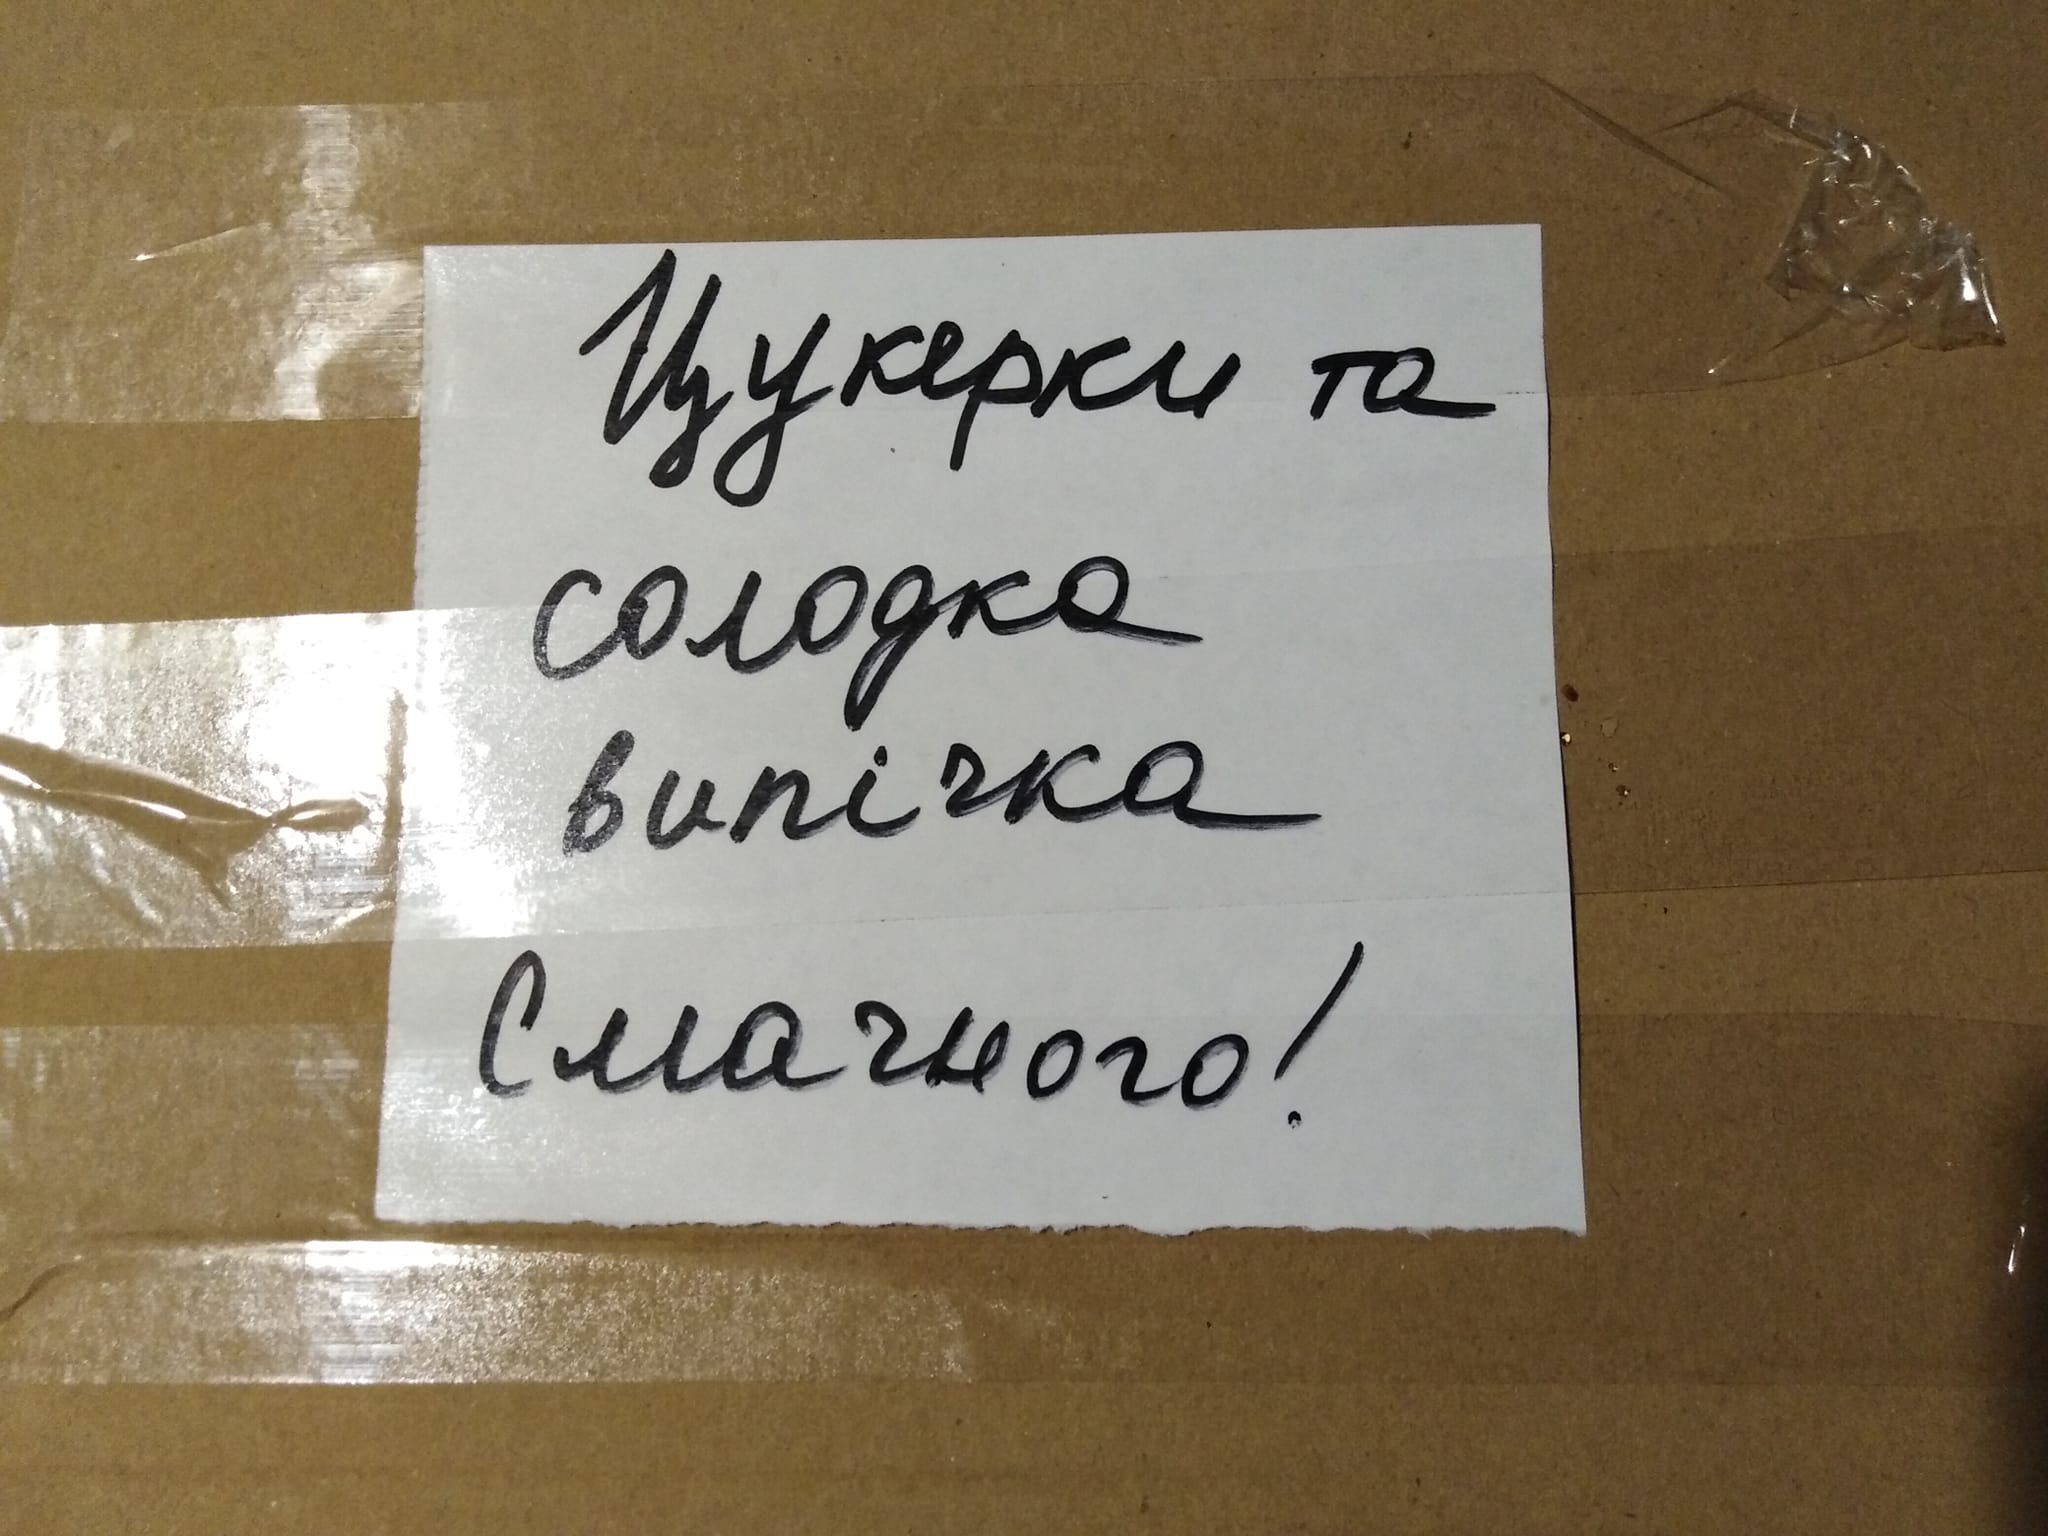 Цукерки та
солодка
випічка
Смачного!